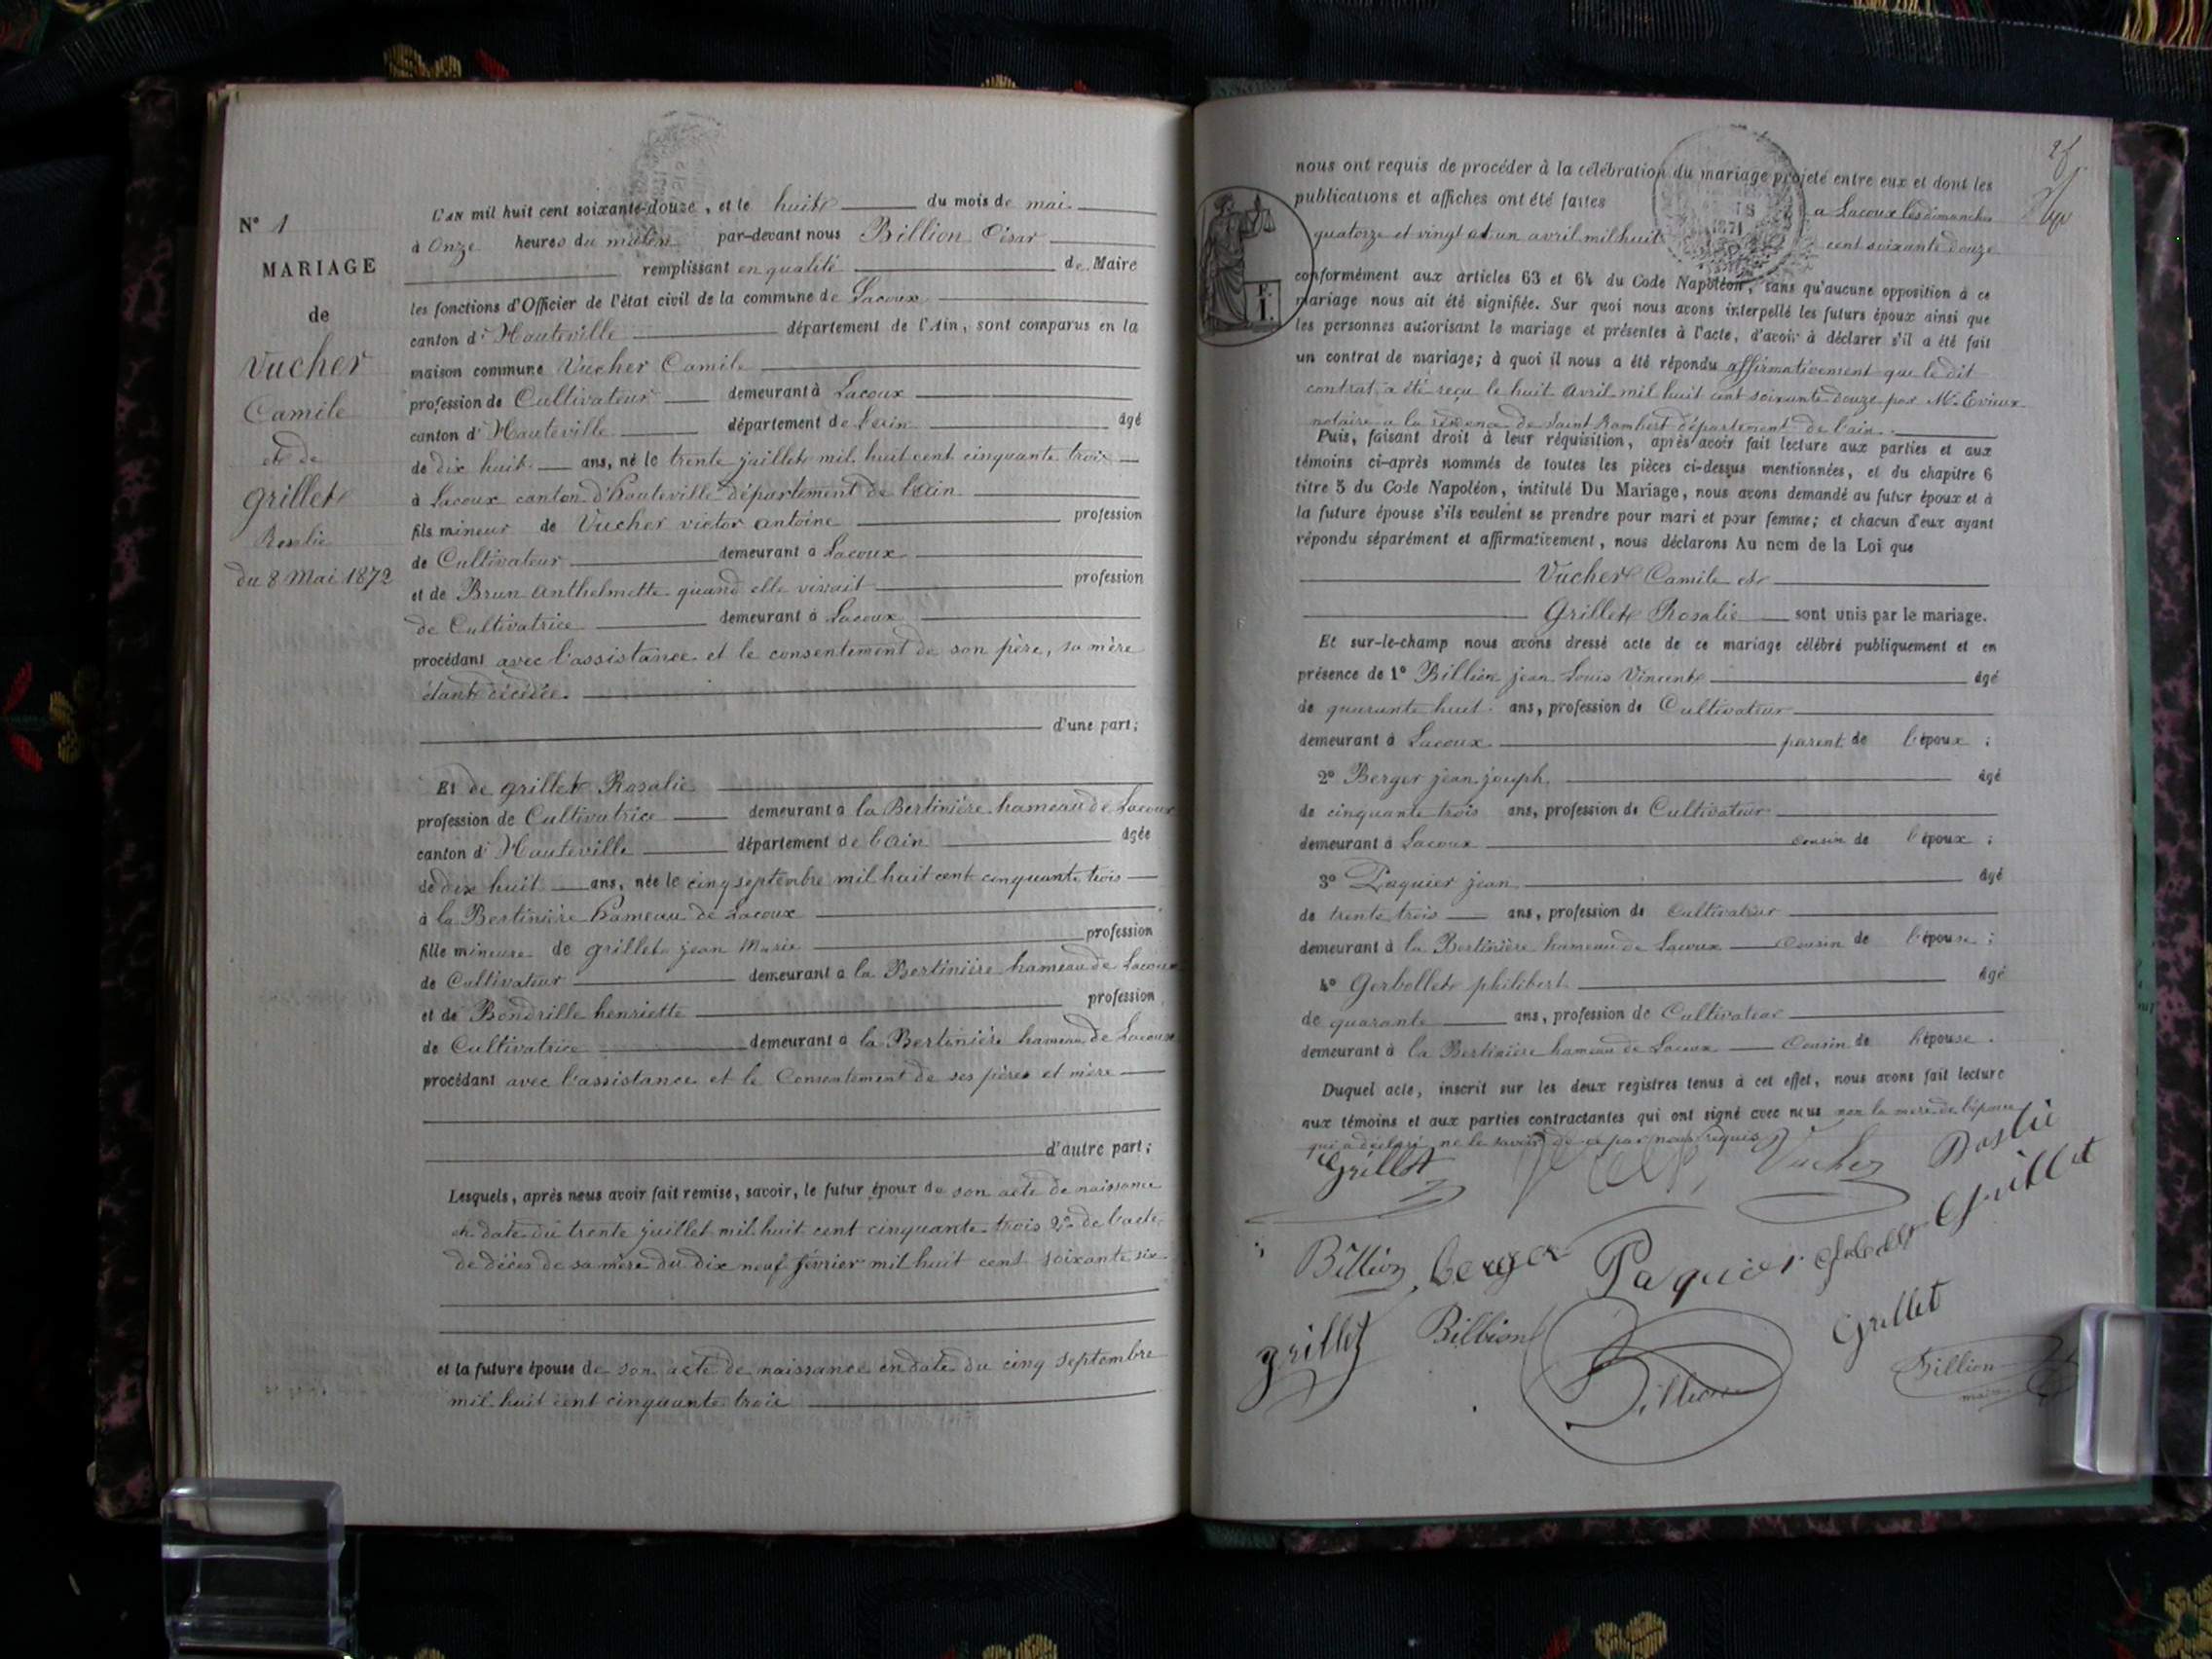 N° 1
MARIAGE
de
Vucher
Camile
et de
grillet
Rosalie
du 8 Mai 1872
L'AN mil huit cent soixante-douze, et le huit du mois de mai
à Onze heures du matin par-devant nous Billion César
remplissant en qualité de Maire
les fonctions d'Officier de l'état civil de la commune de Lacoux
canton d'Hauteville département de l'Ain, sont comparus en la
maison commune Vucher Camile
profession de Cultivateur demeurant à Lacoux
canton d'Hauteville département de L'ain âgé
de dix huit ans, né le trente juillet mil huit cent cinquante trois
à Lacoux canton d'hauteville département de l'ain
fils mineur de Vucher victor antoine profession
de Cultivateur demeurant à Lacoux
et de Brun anthelmette quand elle vivait profession
de Cultivatrice demeurant à Lacoux
procédant avec l'assistance et le consentement de son père, sa mère
étant décédée.
d'une part;
Et de grillet Rosalie
profession de Cultivatrice demeurant à la Bertinière hameau de Lacoux
canton d'Hauteville département de l'ain âgée
de dix huit ans, née le cinq septembre mil huit cent cinquante trois
à la Bertinière hameau de Lacoux
fille mineure de grillet jean Marie profession
de Cultivateur demeurant à la Bertinière hameau de Lacoux
et de Bondrille henriette profession
de Cultivatrice demeurant à la Bertinière hameau de Lacoux
procédant avec l'assistance et le Consentement de ses pères et mère
d'autre part;
Lesquels, après nous avoir fait remise, savoir, le futur époux de son acte de naissance
en date du trente juillet mil huit cent cinquante trois 2° de l'acte
de décès de sa mère du dix neuf février mil huit cent soixante six
et la future épouse de son acte de naissance en date du cinq septembre
mil huit cent cinquante trois
nous ont requis de procéder à la célébration du mariage projeté entre eux et dont les
publications et affiches ont été faites a Lacoux les dimanches
quatorze et vingt et un avril mil huit cent soixante douze
1871
conformément aux articles 63 et 64 du Code Napoléon, sans qu'aucune opposition à ce
mariage nous ait été signifiée. Sur quoi nous avons interpellé les futurs époux ainsi que
les personnes autorisant le mariage et présentes à l'acte, d'avoir à déclarer s'il a été fait
un contrat de mariage; à quoi il nous a été répondu affirmativement que le dit
contrat a été reçu le huit avril mil huit cent soixante douze par Mr. Evieux
notaire a la résidence de Saint Rambert département de l'ain.
Puis, faisant droit à leur réquisition, après avoir fait lecture aux parties et aux
témoins ci-après nommés de toutes les pièces ci-dessus mentionnées, et du chapitre 6
titre 5 du Code Napoléon, intitulé Du Mariage, nous avons demandé au futur époux et à
la future épouse s'ils veulent se prendre pour mari et pour femme; et chacun d'eux ayant
répondu séparément et affirmativement, nous déclarons Au nom de la Loi que
Vucher Camile et
Grillet Rosalie sont unis par le mariage.
Et sur-le-champ nous avons dressé acte de ce mariage célébré publiquement et en
présence de 1° Billion jean Louis Vincent âgé
de quarante huit ans, profession de Cultivateur
demeurant à Lacoux parent de l'époux;
2° Berger jean joseph âgé
de cinquante trois ans, profession de Cultivateur
demeurant à Lacoux cousin de l'époux;
3° Paquier jean âgé
de trente trois ans, profession de Cultivateur
demeurant à la Bertinière hameau de Lacoux Cousin de l'épouse;
4° Gerbollet philibert âgé
de quarante ans, profession de Cultivateur
demeurant à la Bertinière hameau de Lacoux Cousin de l'épouse.
Duquel acte, inscrit sur les deux registres tenus à cet effet, nous avons fait lecture
aux témoins et aux parties contractantes qui ont signé avec nous non la mère de l'épouse
qui a déclaré ne le savoir de ce par nous requis
Grillet Vucher Roslie Grillet
Billion berger Paquier
grillet Billion Billion Grillet
Billion
maire